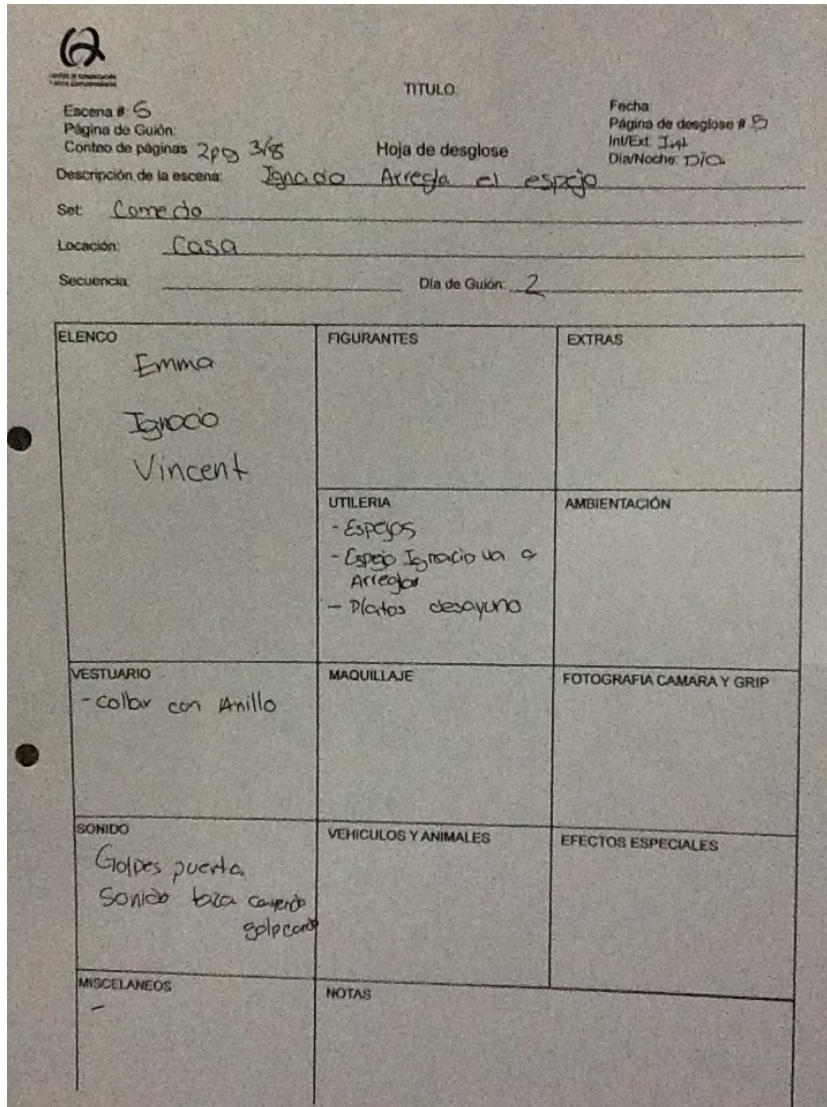 TITULO:
Escena #: 5
Fecha:
Página de Guión:
Página de desglose #: 5
Conteo de páginas 2pg 3/8
Hoja de desglose
Int/Ext: Int
Día/Noche: Día
Descripción de la escena: Ignacio Arregla el espejo
Set: Comedo
Locación: Casa
Secuencia:
Día de Guión: 2
ELENCO
Emma
Ignacio
Vincent
FIGURANTES
EXTRAS
UTILERIA
- Espejos
- Espejo Ignacio va a
Arreglar
- Platos desayuno
AMBIENTACIÓN
VESTUARIO
- Collar con Anillo
MAQUILLAJE
FOTOGRAFIA CAMARA Y GRIP
SONIDO
Golpes puerta
Sonido taza cayendo
golpeando
VEHICULOS Y ANIMALES
EFECTOS ESPECIALES
MISCELANEOS
-
NOTAS